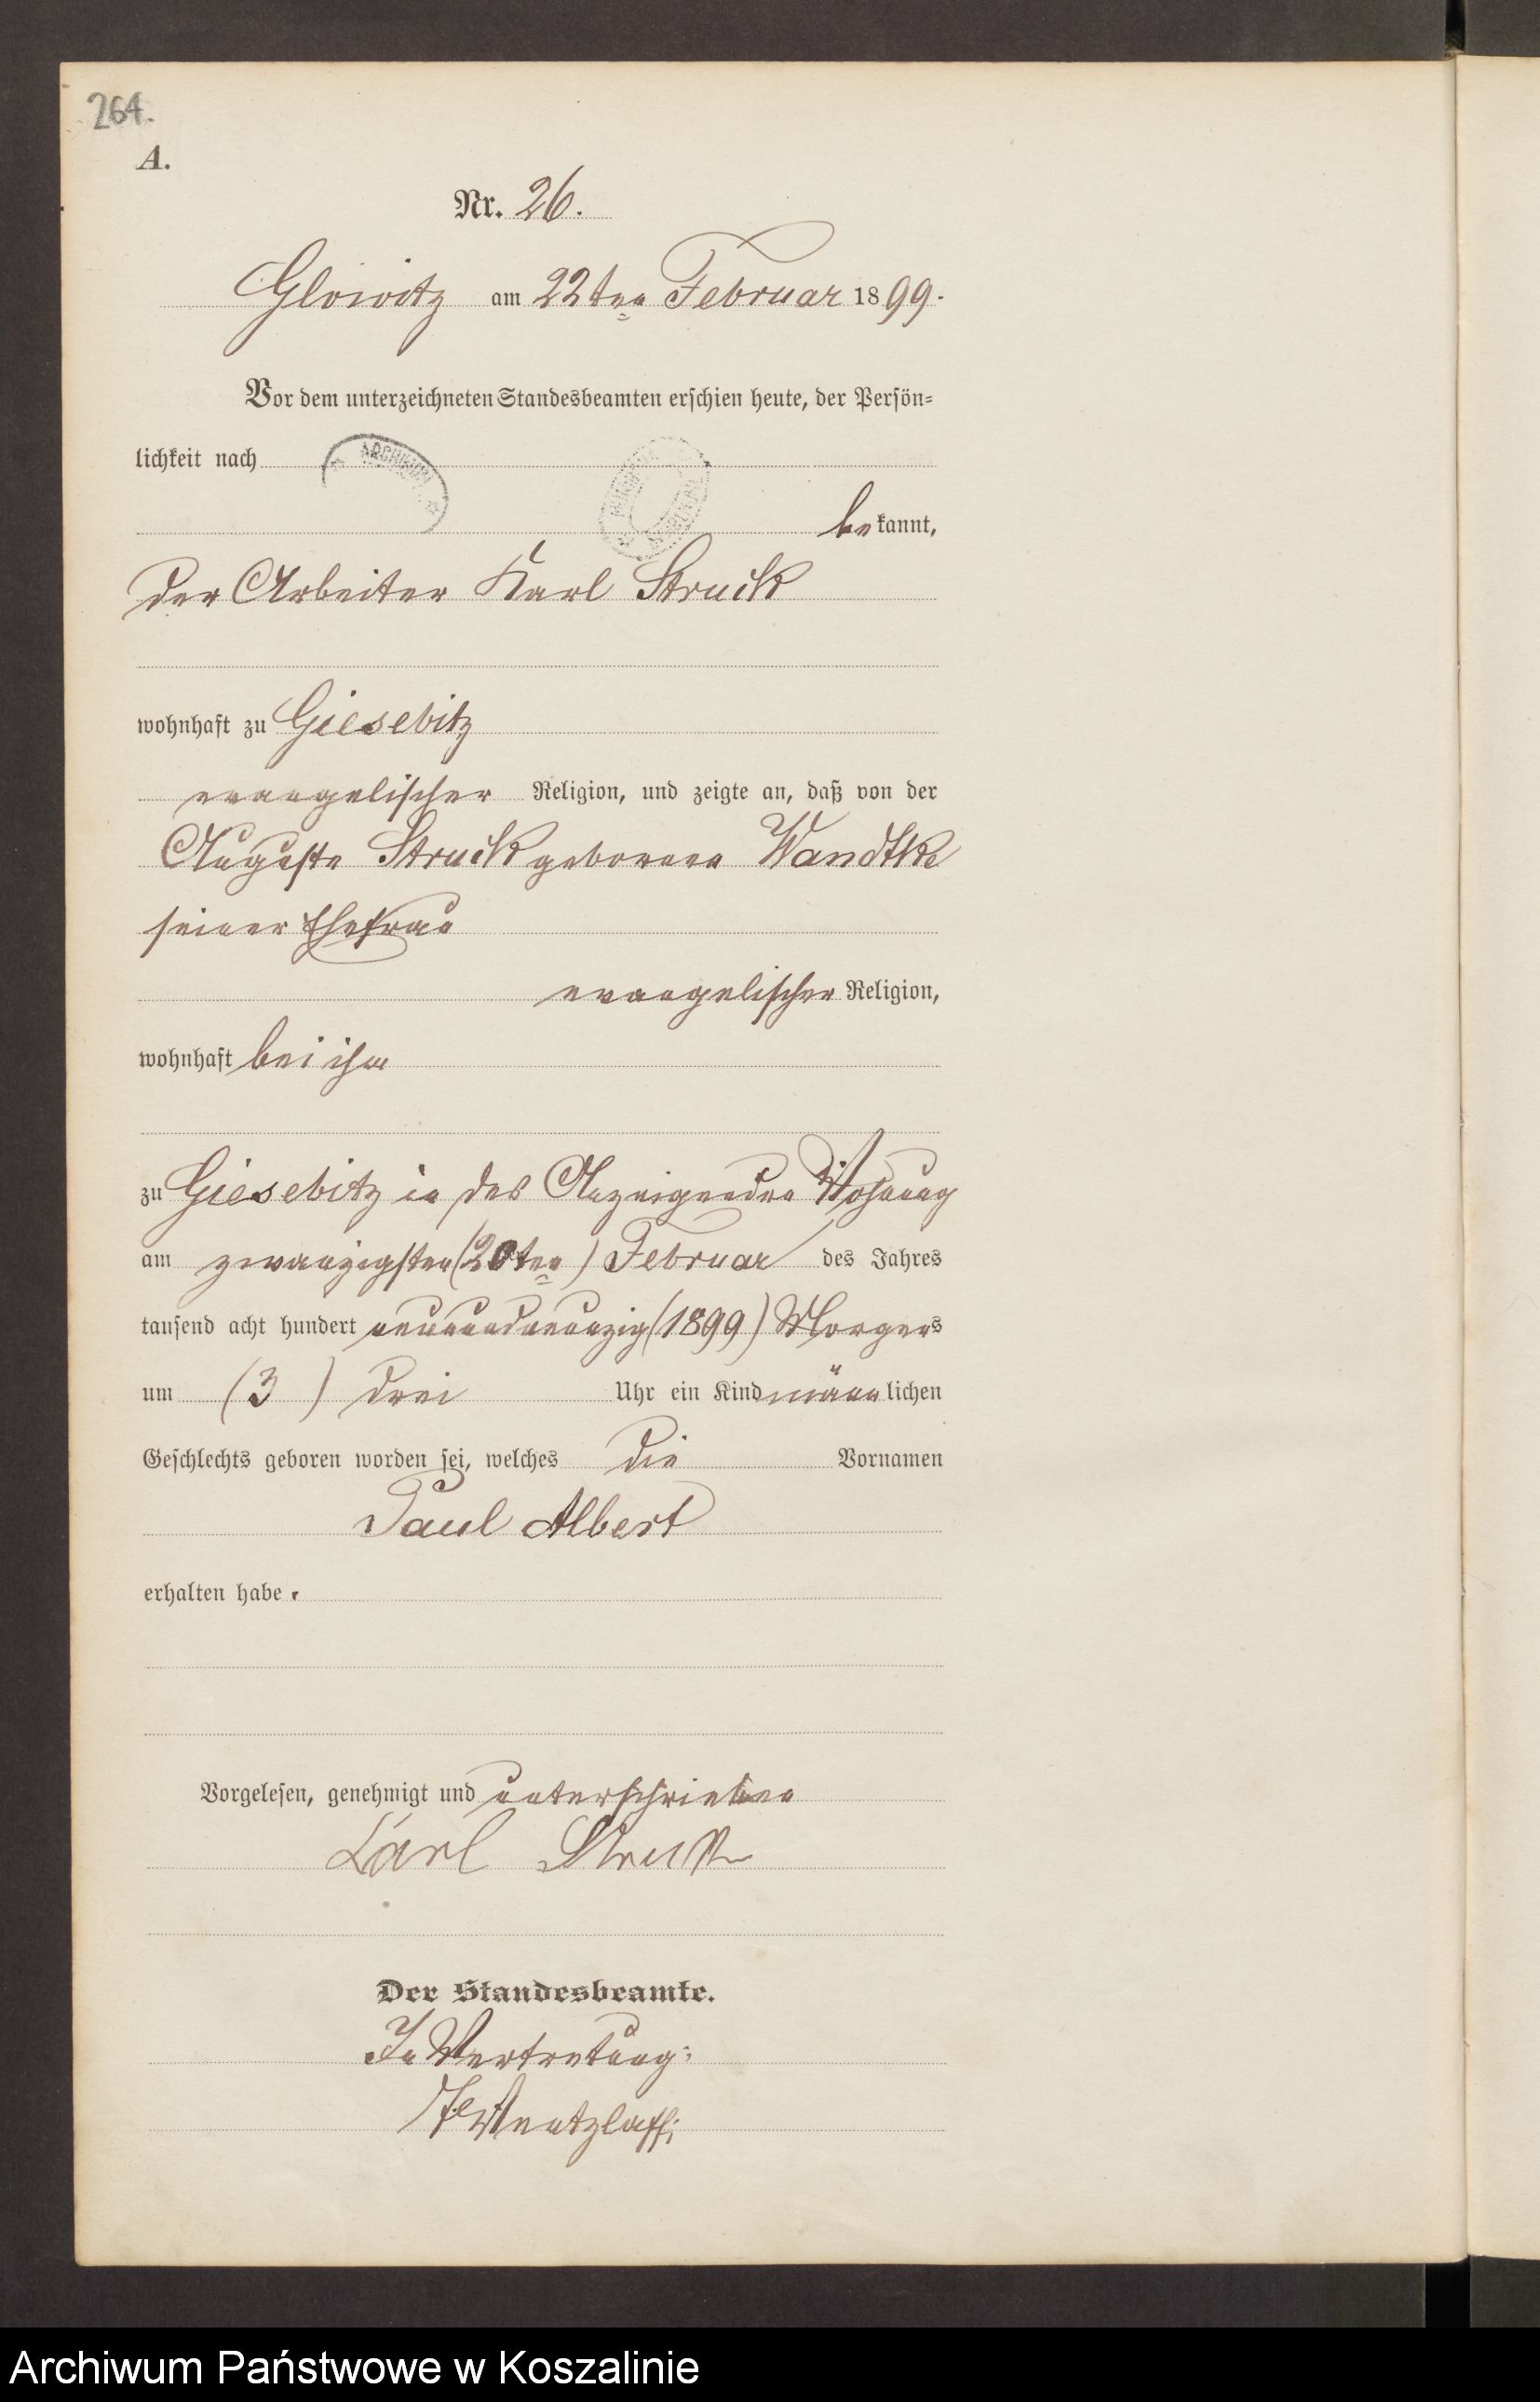 264.
A.
Nr. 26.
Glowitz am 22ten Februar 1899.
Vor dem unterzeichneten Standesbeamten erschien heute, der Persön-
lichkeit nach
ARCHIWUM
bekannt,
der Arbeiter Karl Struck
wohnhaft zu Giesebitz
evangelischer Religion, und zeigte an, daß von der
Auguste Struck geborenen Wandtke
seiner Ehefrau
evangelischer Religion,
wohnhaft bei ihm
zu Giesebitz in des Anzeigenden Wohnung
am zwanzigsten (20ten) Februar des Jahres
tausend acht hundert neunundneunzig (1899) Morgens
um (3) drei Uhr ein Kind männlichen
Geschlechts geboren worden sei, welches die Vornamen
Paul Albert
erhalten habe.
Vorgelesen, genehmigt und unterschrieben
Karl Struck
Der Standesbeamte.
In Vertretung:
Wentzlaff.
Archiwum Państwowe w Koszalinie